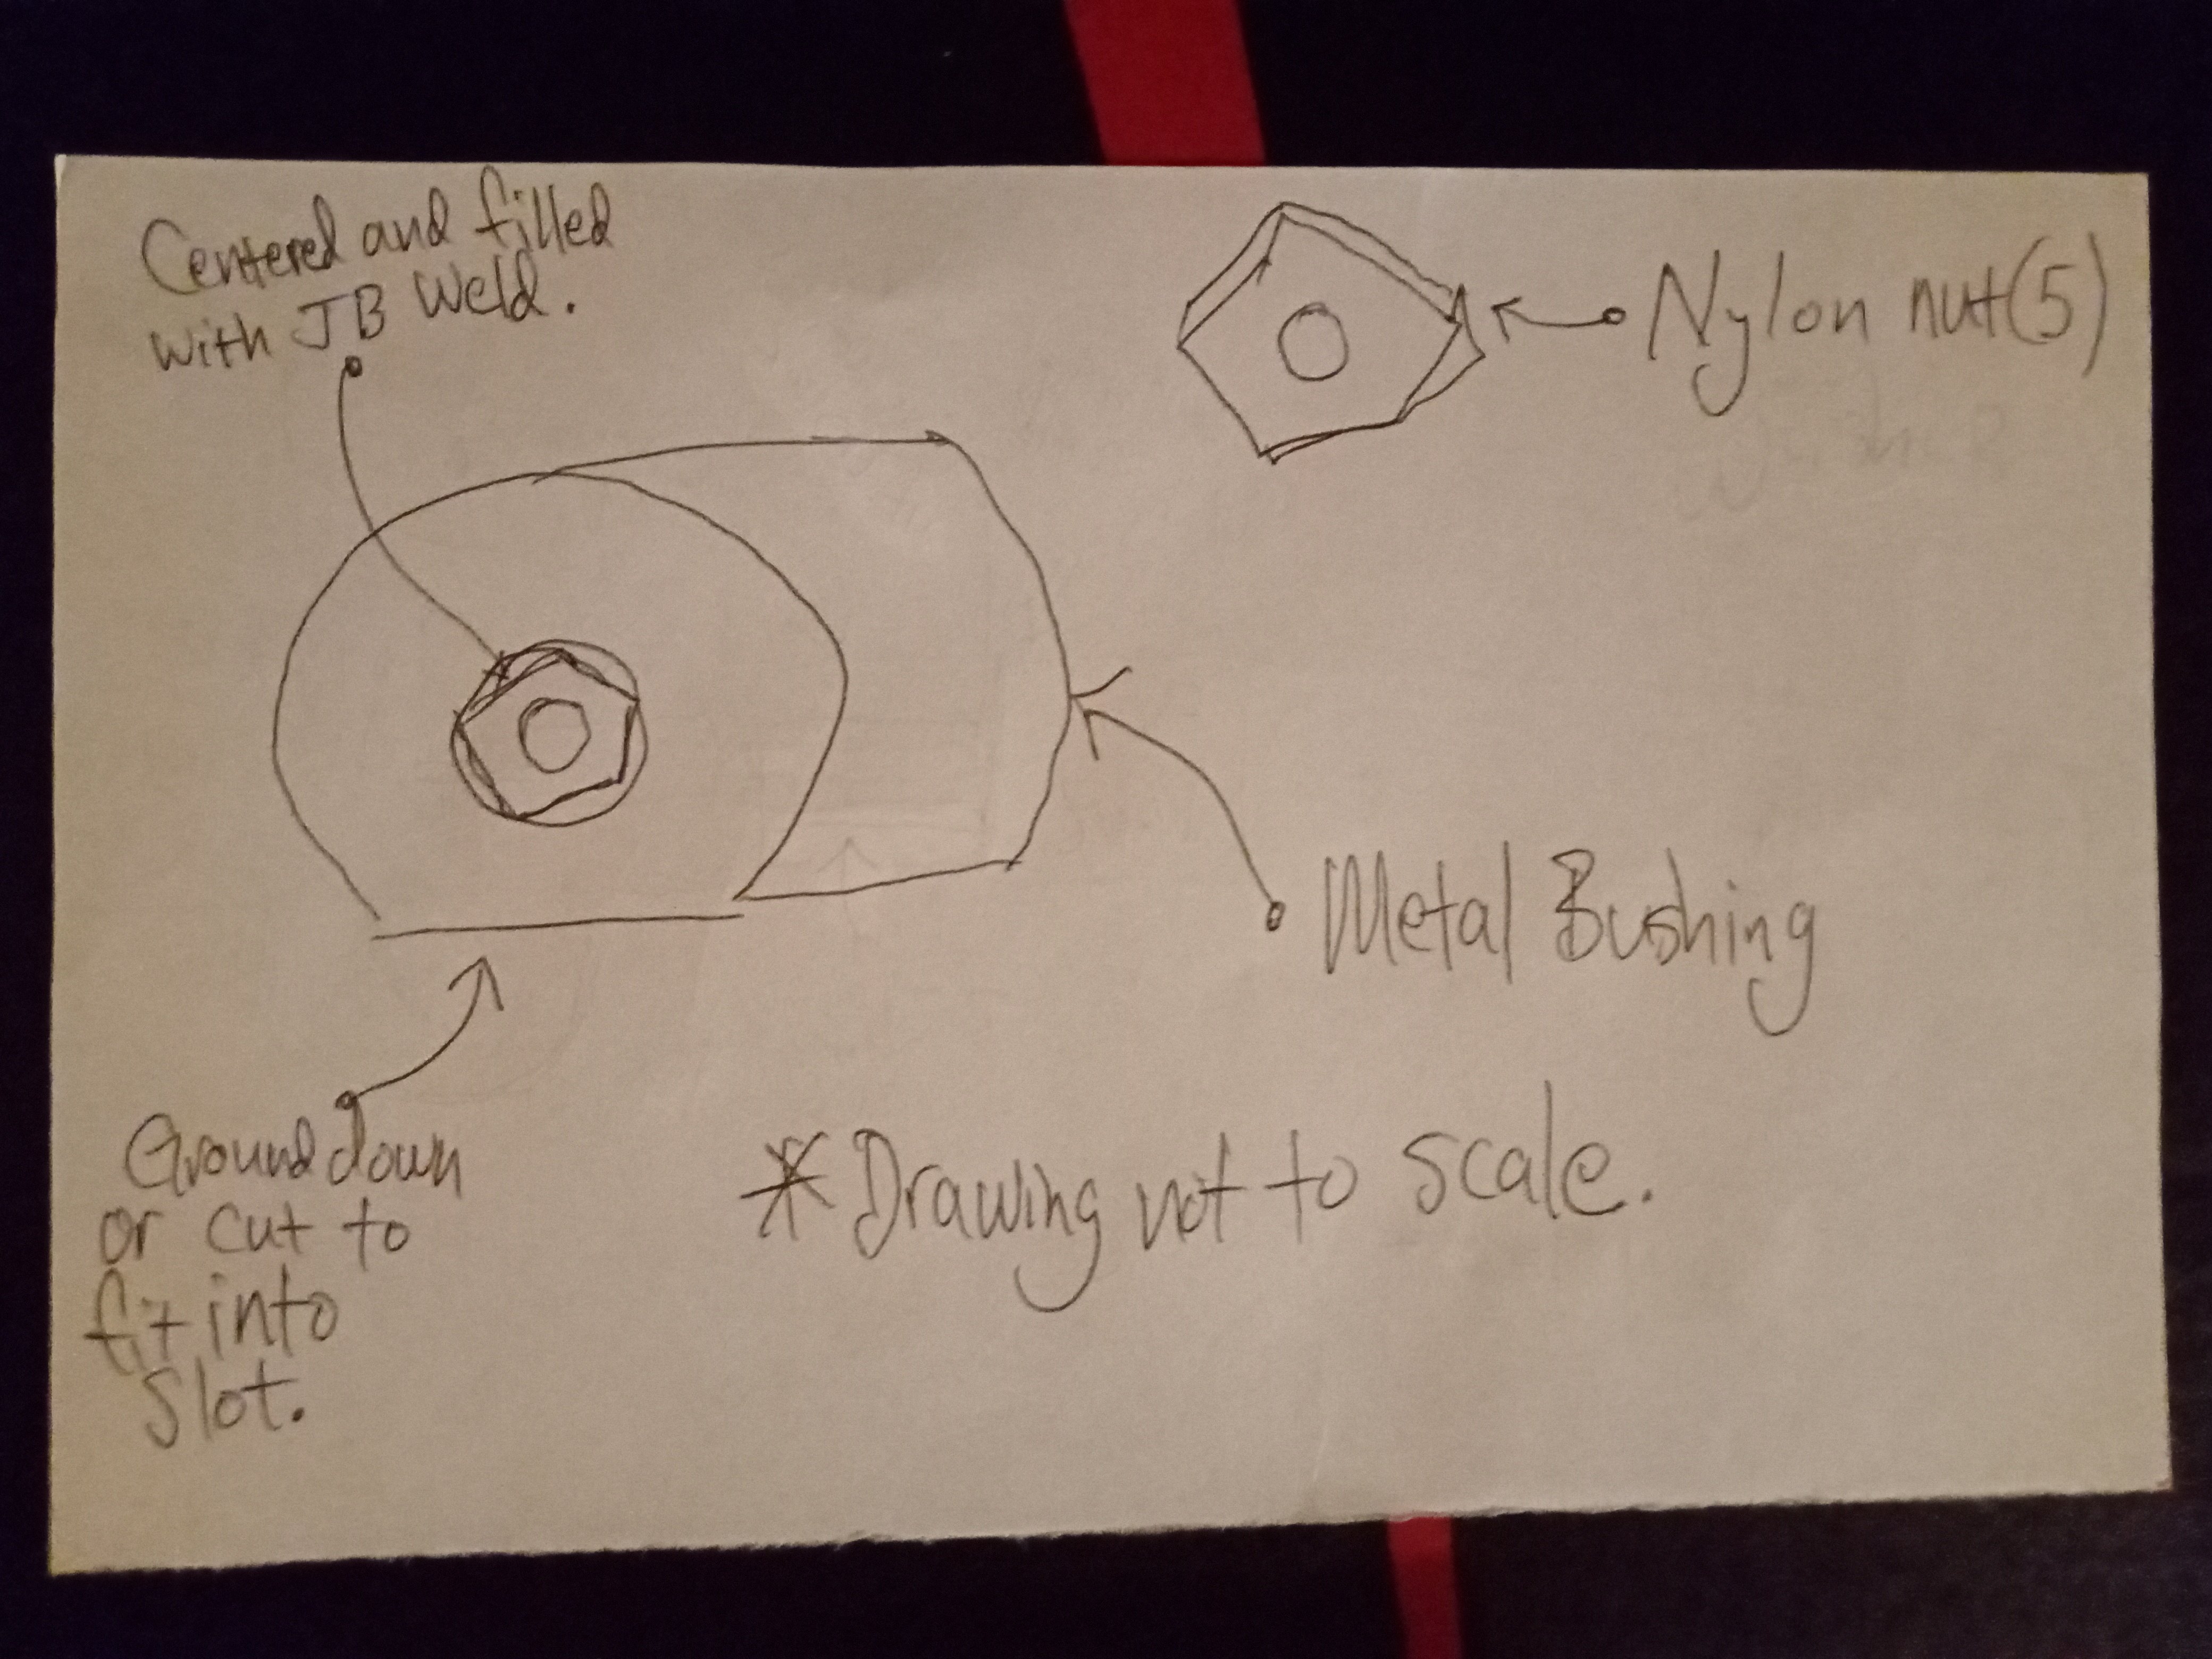 Centered and filled
with JB Weld.
Nylon nut(5)
Metal Bushing
Ground down
or cut to
fit into
Slot.
* Drawing not to scale.